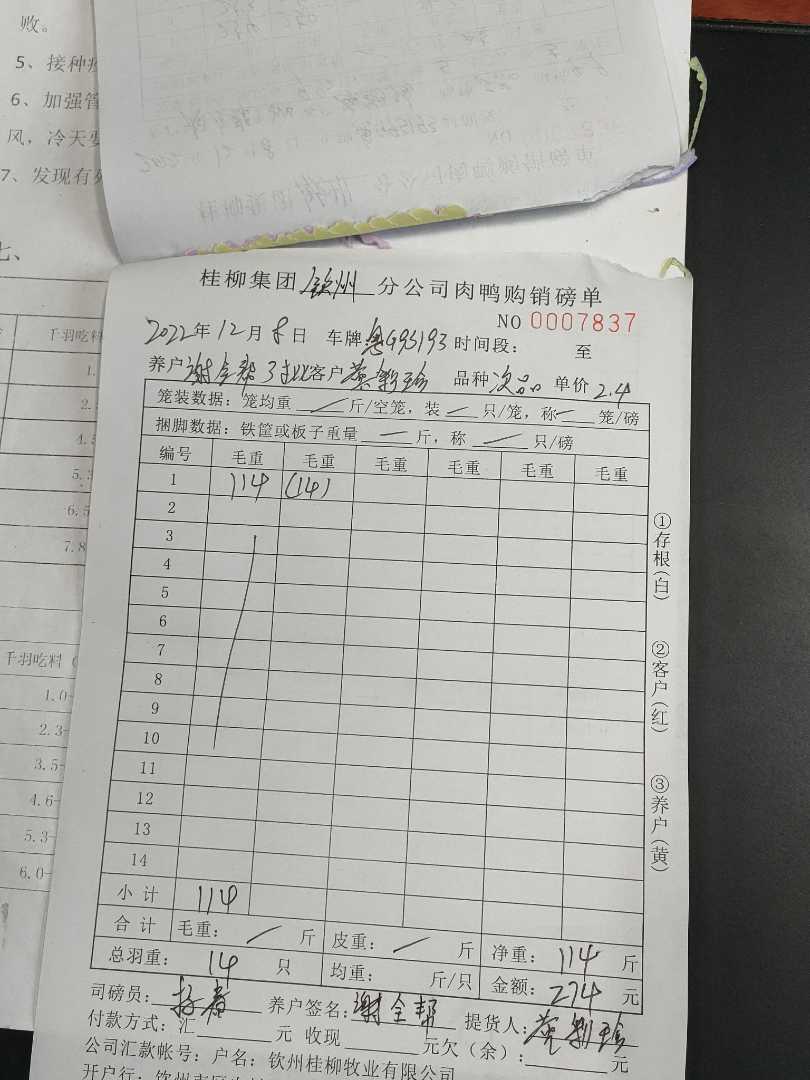 败。
5、接种
6、加强管
风，冷天要
7、发现有
七、
千羽吃料
1.
2.
4.
5.3
6.5
7.8
千羽吃料
1.0-
2.3-
3.5-
4.6-
5.3-
6.0-
桂柳集团 钦州 分公司肉鸭购销磅单
NO 0007837
2022年12月8日 车牌粤G95193 时间段： 至
养户谢全帮 客户 品种次品 单价2.4
笼装数据：笼均重 斤/空笼，装 只/笼，称 笼/磅
捆脚数据：铁筐或板子重量 斤，称 只/磅
编号 毛重 毛重 毛重 毛重 毛重 毛重
1 114 (14)
2
3
4
5
6
7
8
9
10
11
12
13
14
小计 114
合计 毛重： 斤 皮重： 斤 净重：114 斤
总羽重：14 只 均重： 斤/只 金额：274 元
司磅员： 养户签名：谢全帮 提货人：
付款方式：汇 元 收现 元欠（余）： 元
公司汇款帐号：户名：钦州桂柳牧业有限公司
开户行：钦州市
①存根（白）
②客户（红）
③养户（黄）